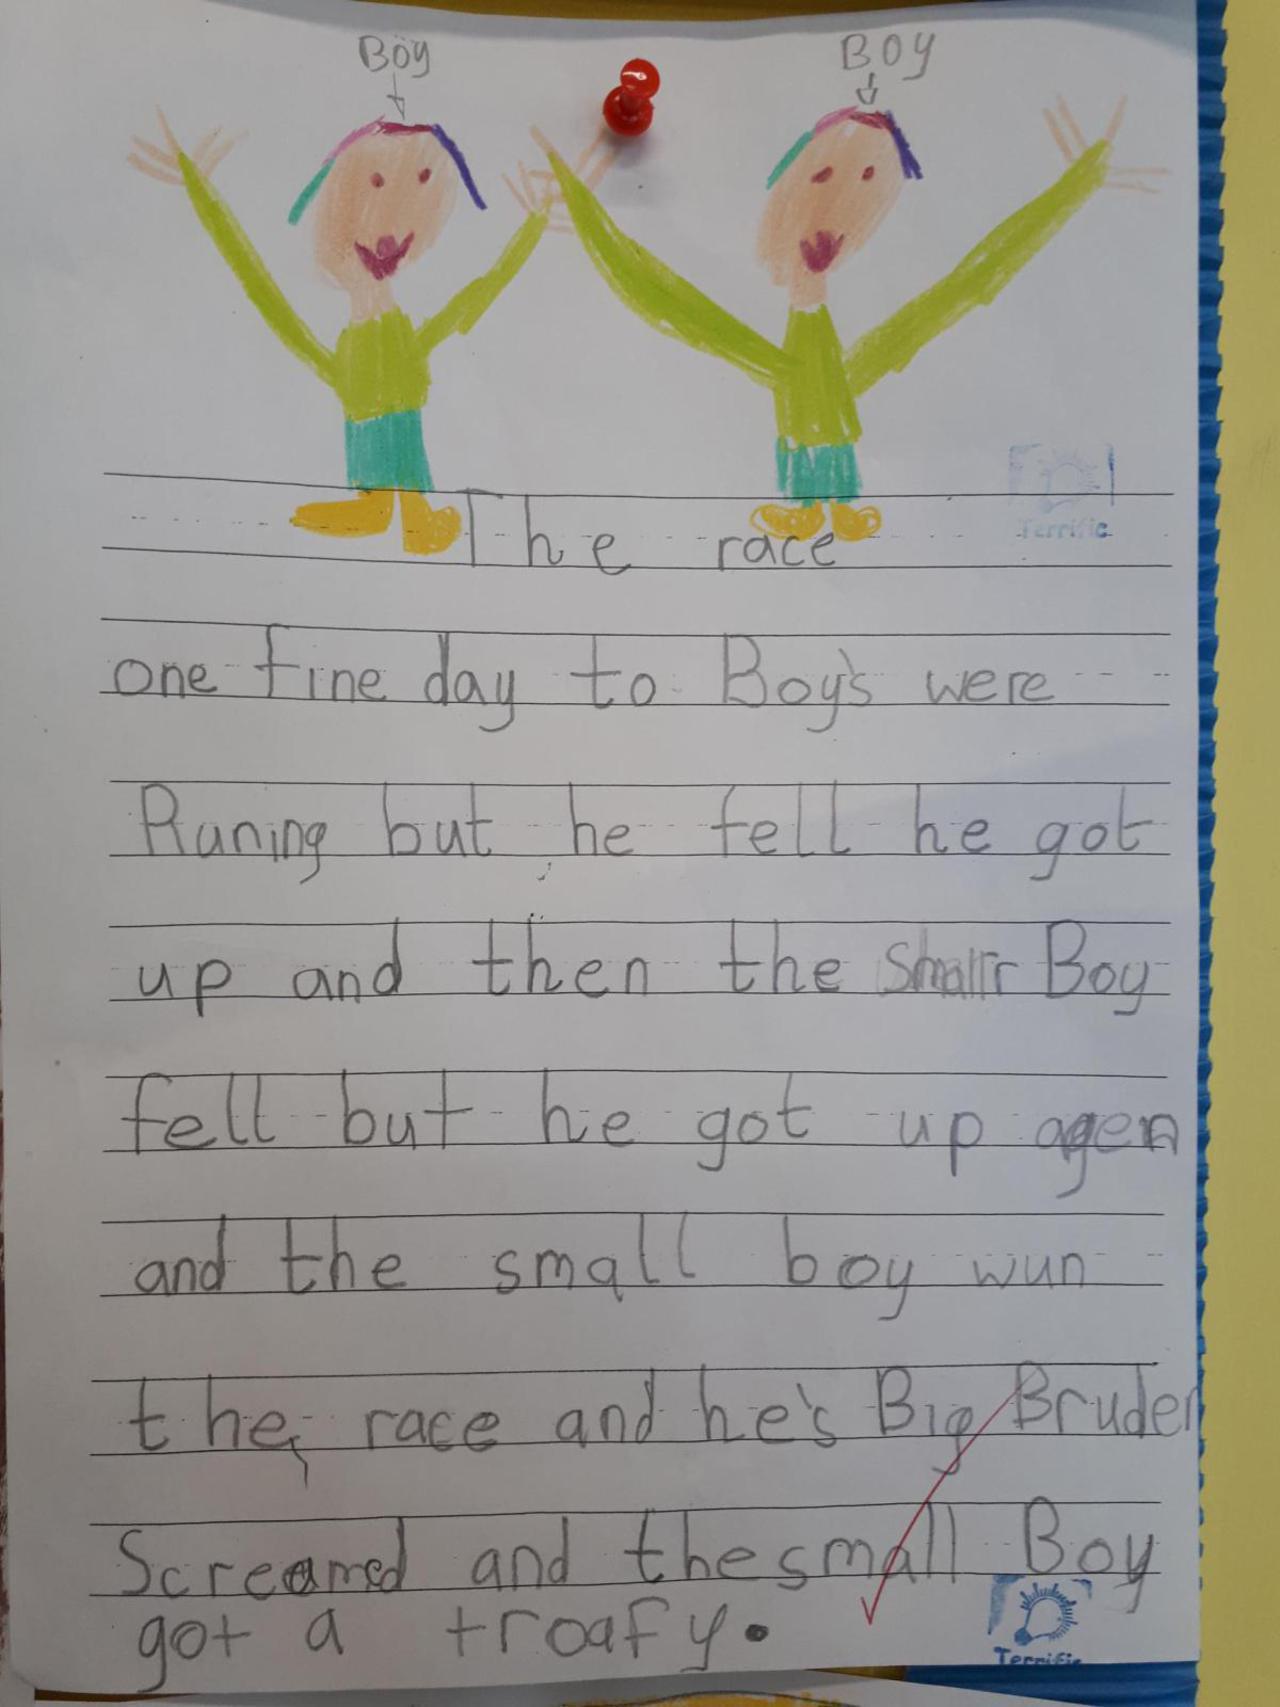 Boy
Boy
The race
Terrific
one fine day to Boy's were
Runing but he fell he got
up and then the Smallr Boy
fell but he got up agen
and the small boy wun
the race and he's Big Bruder
Screamed and the small Boy
got a troafy.
Terrific